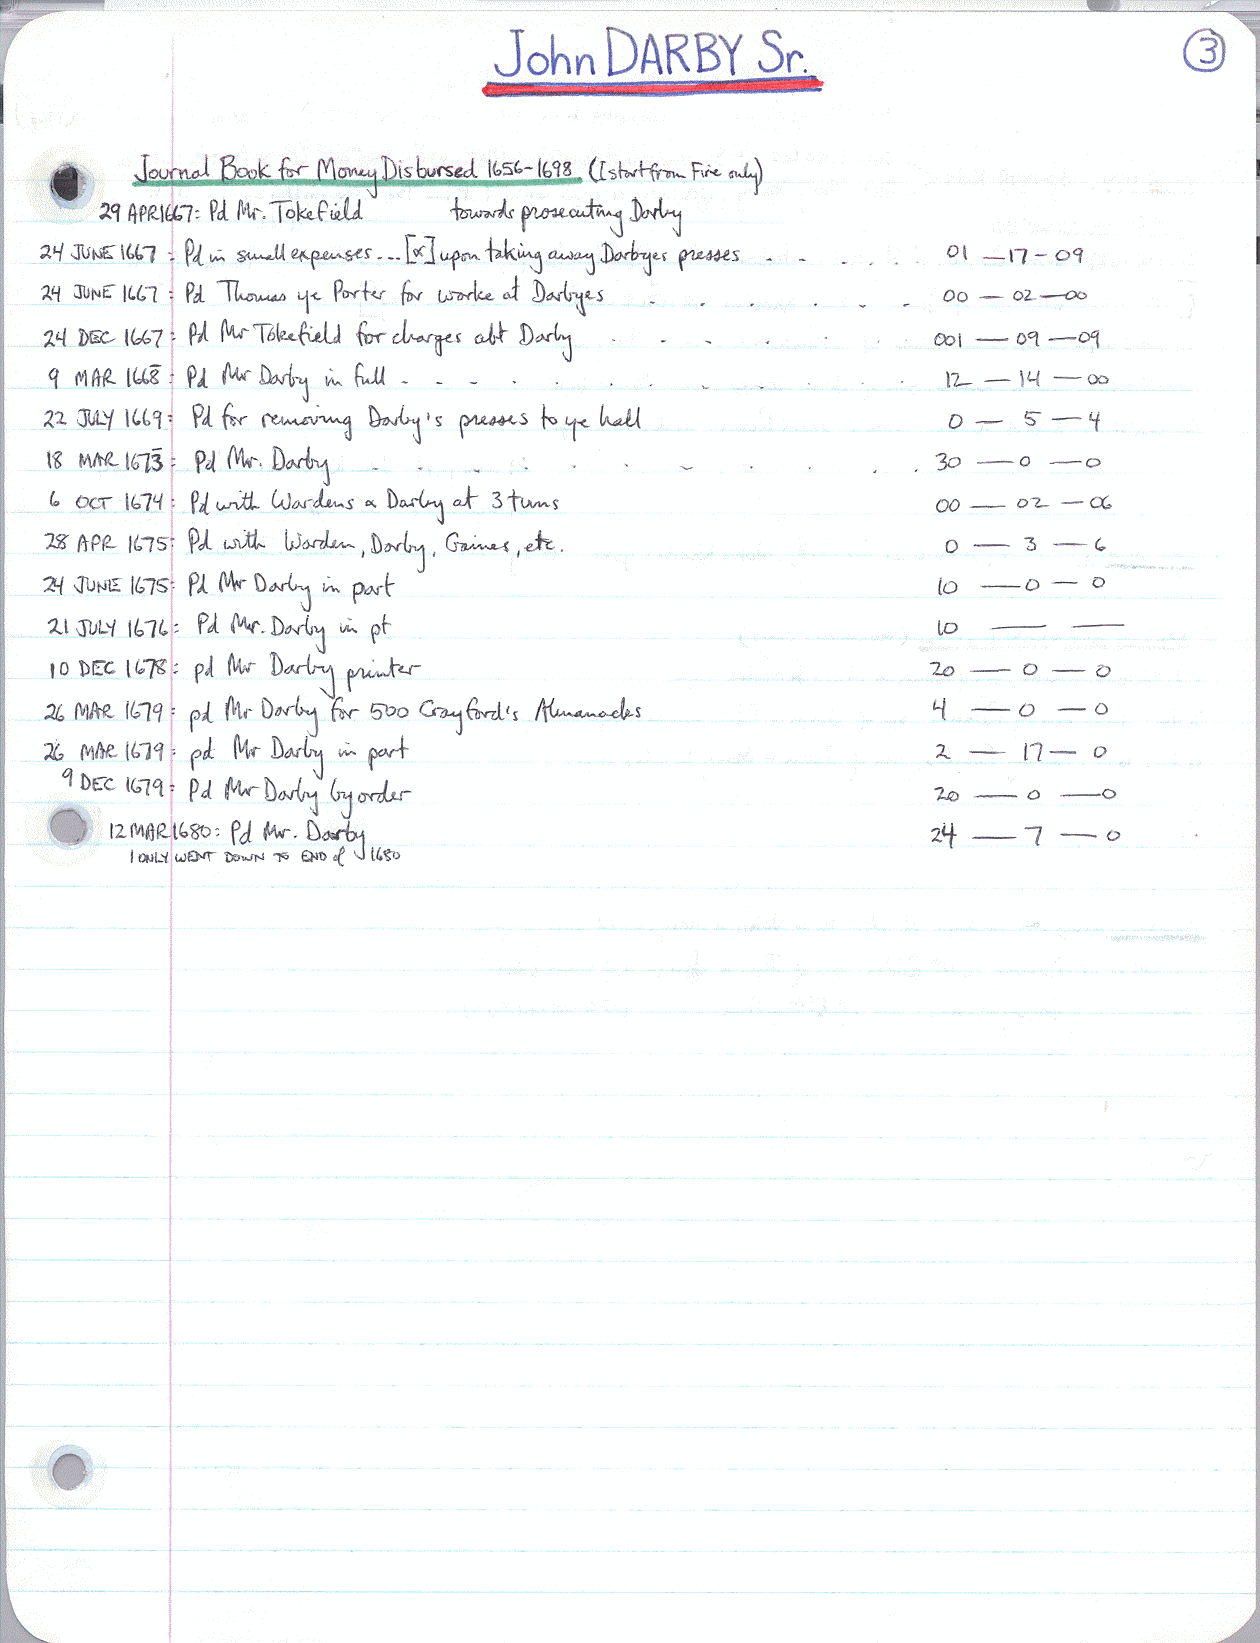 John DARBY Sr.
3
Journal Book for Money Disbursed 1656-1698 (I start from Fire only)
29 APR 1667: Pd Mr. Tokefield towards prosecuting Darby
24 JUNE 1667: Pd in small expenses... [&] upon taking away Darbyes presses 01 — 17 - 09
24 JUNE 1667: Pd Thomas ye Porter for worke at Darbyes 00 — 02 — 00
24 DEC 1667: Pd Mr Tokefield for charges abt Darby 001 — 09 — 09
9 MAR 1668: Pd Mr Darby in full 12 — 14 — 00
22 JULY 1669: Pd for removing Darby's presses to ye hall 0 — 5 — 4
18 MAR 1673: Pd Mr. Darby 30 — 0 — 0
6 OCT 1674: Pd with Wardens & Darby at 3 turns 00 — 02 — 06
28 APR 1675: Pd with Warden, Darby, Gaines, etc. 0 — 3 — 6
24 JUNE 1675: Pd Mr Darby in part 10 — 0 — 0
21 JULY 1676: Pd Mr. Darby in pt 10 — —
10 DEC 1678: pd Mr Darby printer 20 — 0 — 0
26 MAR 1679: pd Mr Darby for 500 Crayford's Almanacks 4 — 0 — 0
26 MAR 1679: pd Mr Darby in part 2 — 17 — 0
9 DEC 1679: Pd Mr Darby by order 20 — 0 — 0
12 MAR 1680: Pd Mr. Darby 24 — 7 — 0
I ONLY WENT DOWN TO END of 1680